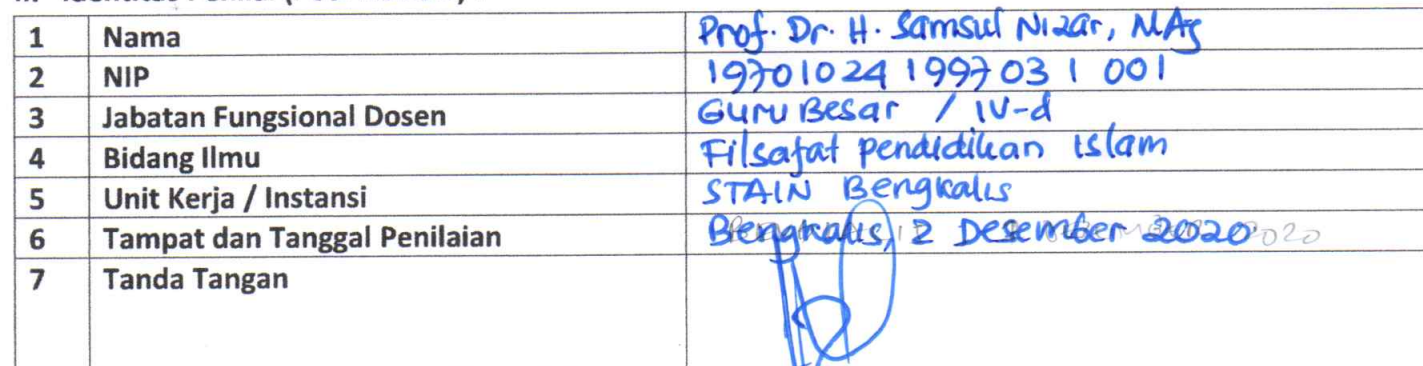 1 Nama Prof. Dr. H. Samsul Nizar, MAg
2 NIP 19701024 199703 1 001
3 Jabatan Fungsional Dosen Guru Besar / IV-d
4 Bidang Ilmu Filsafat pendidikan islam
5 Unit Kerja / Instansi STAIN Bengkalis
6 Tampat dan Tanggal Penilaian Bengkalis, 2 Desember 2020 2020
7 Tanda Tangan